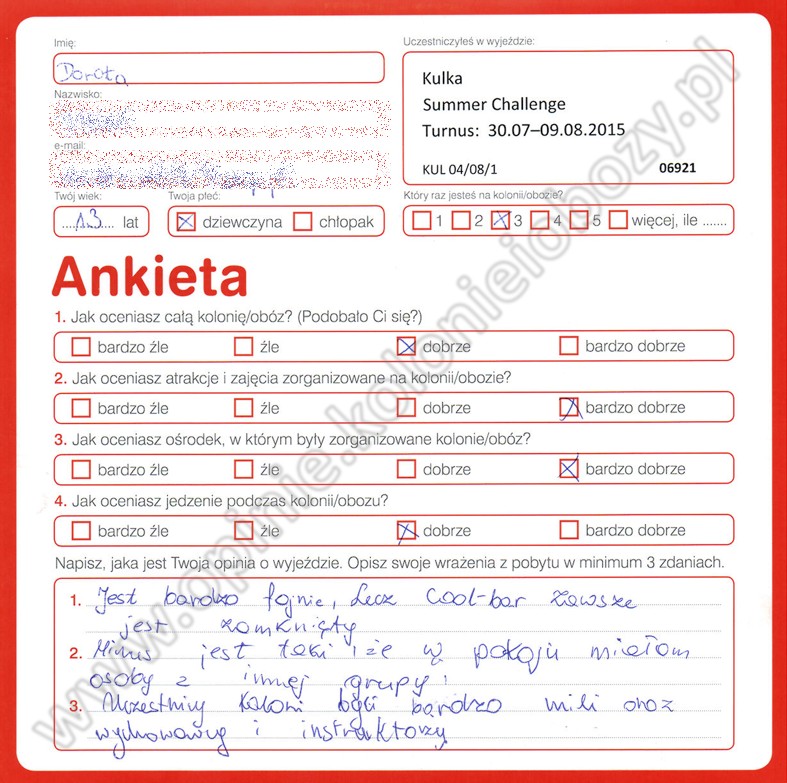 Imię:
Dorota
Nazwisko:
e-mail:
Twój wiek:
13 lat
Twoja płeć:
dziewczyna chłopak
Uczestniczyłeś w wyjeździe:
Kulka
Summer Challenge
Turnus: 30.07–09.08.2015
KUL 04/08/1 06921
Który raz jesteś na kolonii/obozie?
1 2 3 4 5 więcej, ile .......
Ankieta
1. Jak oceniasz całą kolonię/obóz? (Podobało Ci się?)
bardzo źle źle dobrze bardzo dobrze
2. Jak oceniasz atrakcje i zajęcia zorganizowane na kolonii/obozie?
bardzo źle źle dobrze bardzo dobrze
3. Jak oceniasz ośrodek, w którym były zorganizowane kolonie/obóz?
bardzo źle źle dobrze bardzo dobrze
4. Jak oceniasz jedzenie podczas kolonii/obozu?
bardzo źle źle dobrze bardzo dobrze
Napisz, jaka jest Twoja opinia o wyjeździe. Opisz swoje wrażenia z pobytu w minimum 3 zdaniach.
1. Jest bardzo fajnie, Lecz Cool-bar zawsze
jest zamknięty
2. Minus jest taki, że w pokoju miałam
osoby z innej grupy!
3. Uczestnicy koloni byli bardzo mili oraz
wychowawcy i instruktorzy
www.opinie.kolonieiobozy.pl